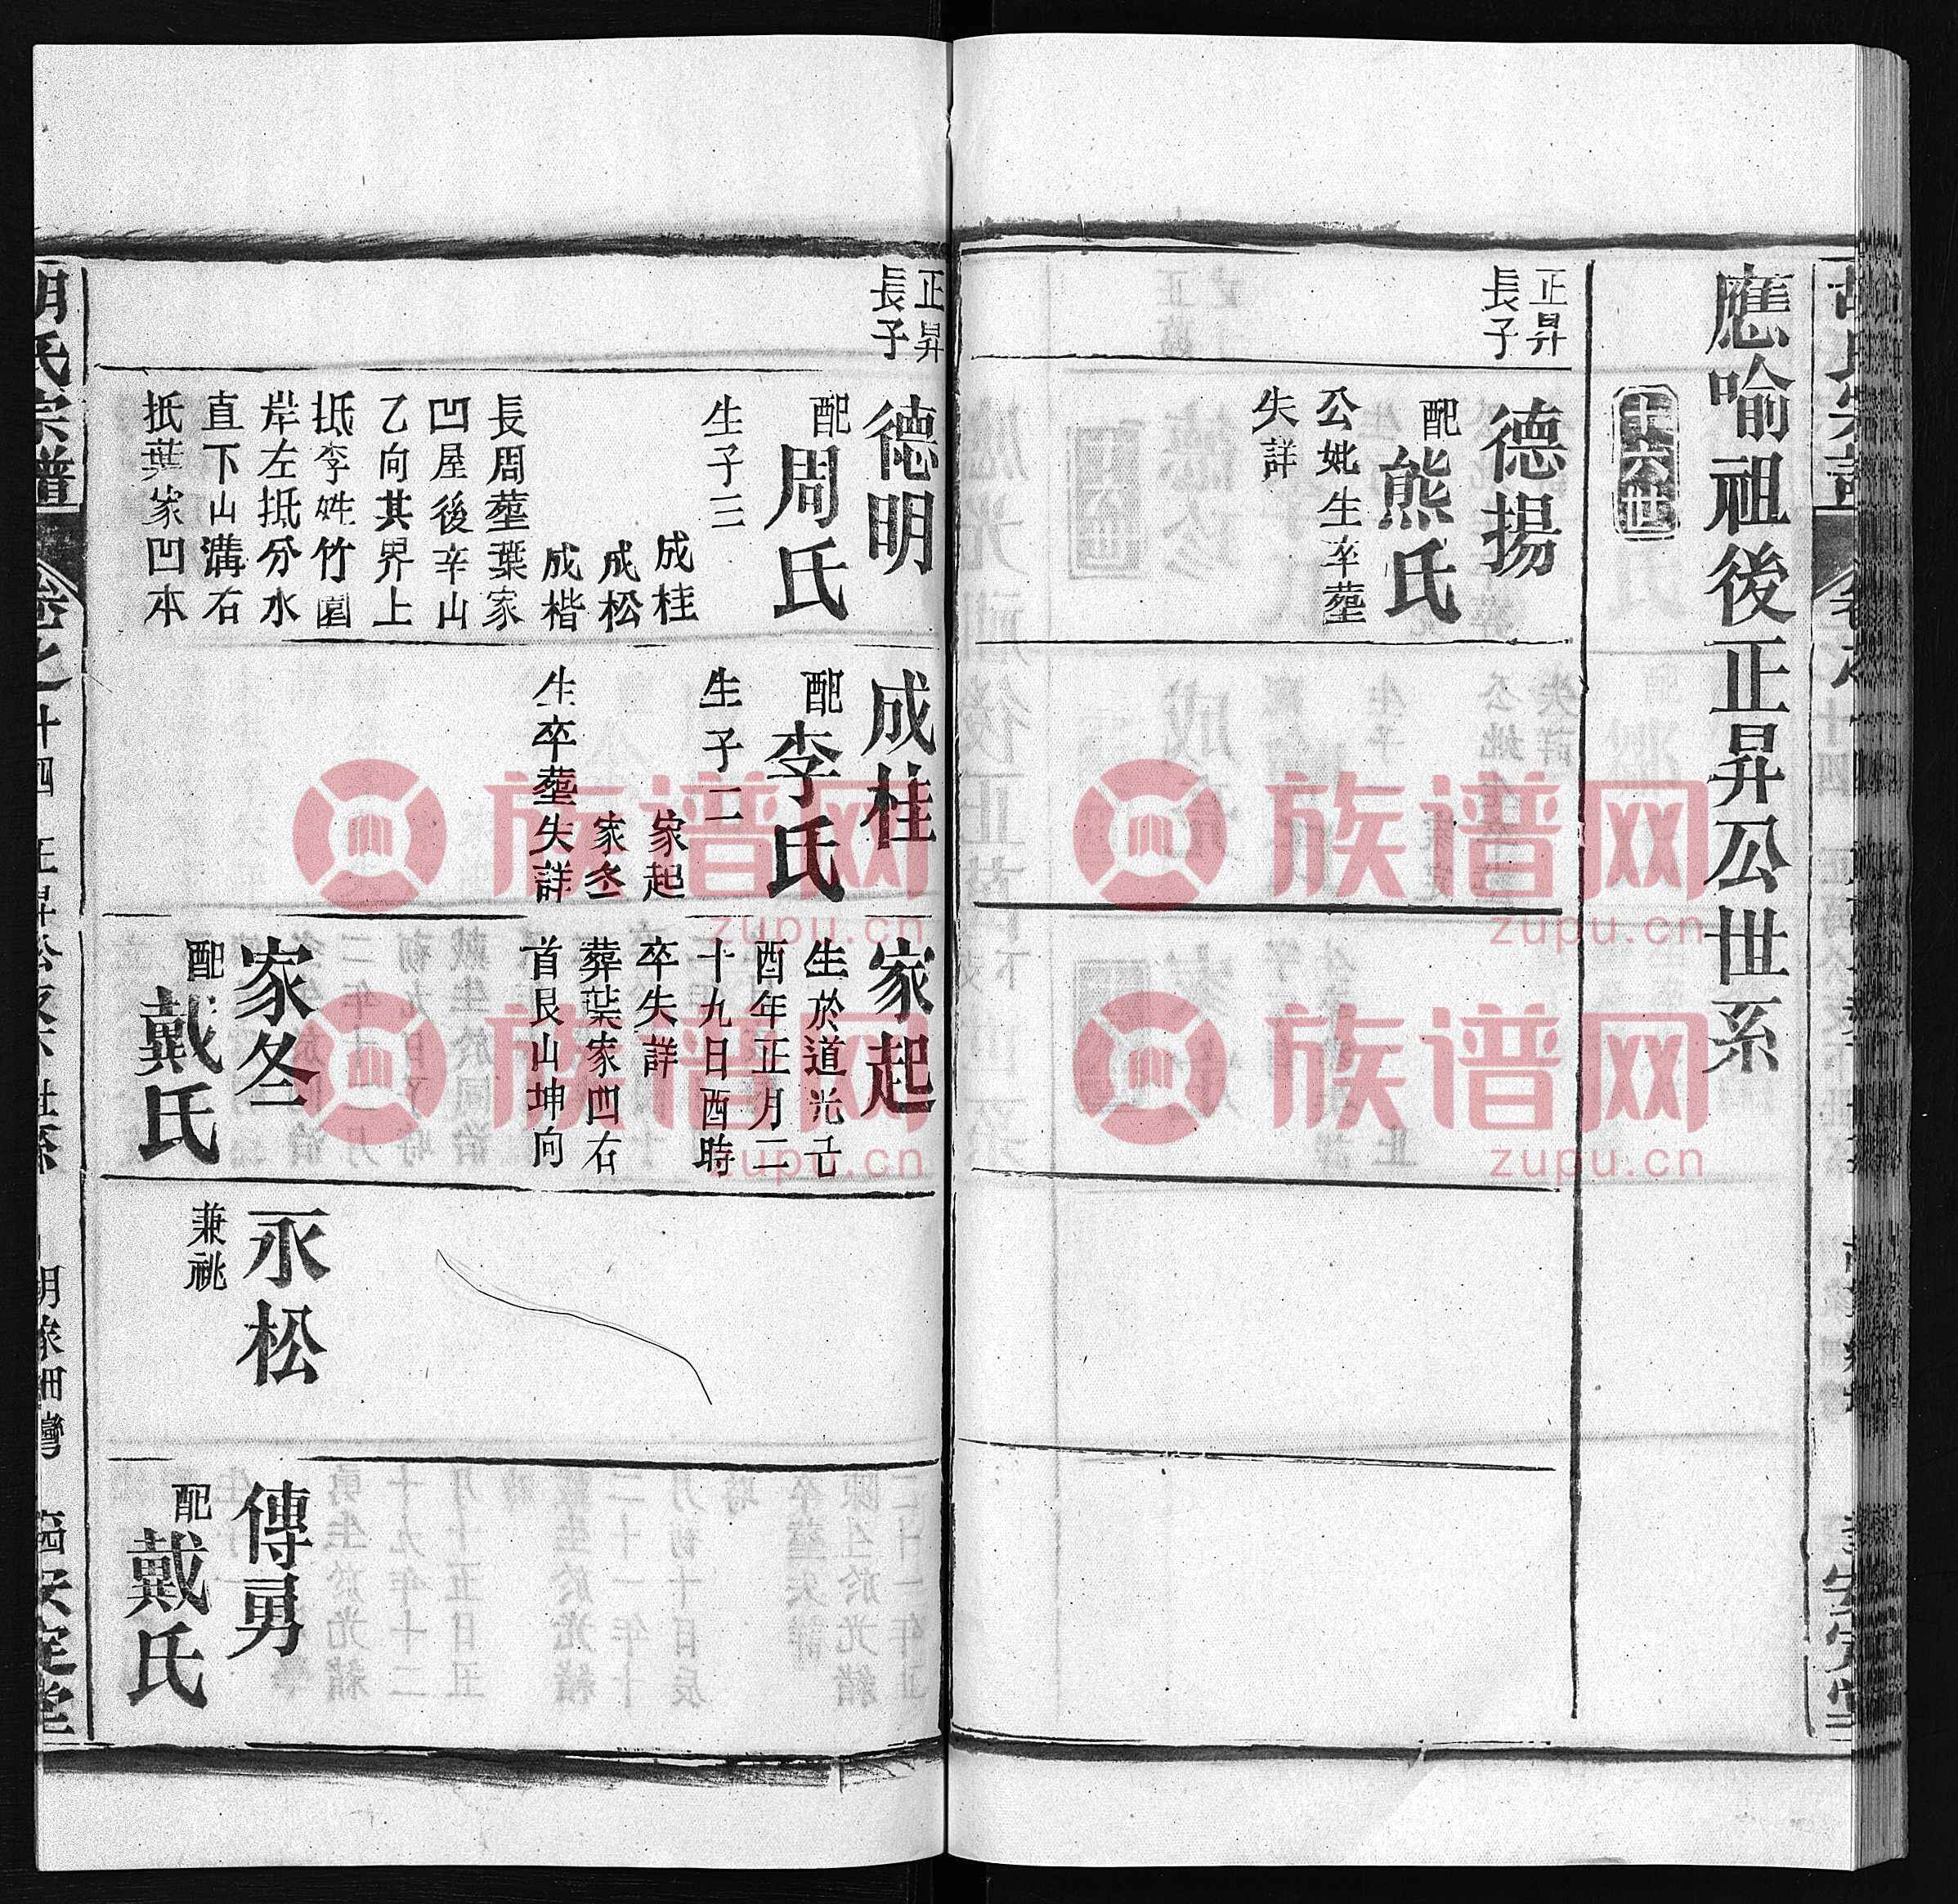 應喻祖後正昇公世系
十六世
正昇
長子
德揚
配熊氏
公妣生卒塟
失詳
正昇
長子
德明
配周氏
生子三
成桂
成松
成楷
長周塟葉家
凹屋後辛山
乙向其界上
抵李姓竹園
岸左抵分水
直下山溝右
抵葉家凹本
成桂
配李氏
生子二
家起
家冬
生卒塟失詳
家起
生於道光己
酉年正月二
十九日酉時
卒失詳
葬葉家凹右
首艮山坤向
家冬
配戴氏
永松
兼祧
傳勇
配戴氏
胡氏宗譜
卷之十四
正昇公支下世系
胡家細灣
安定堂
族谱网
zupu.cn
族谱网
zupu.cn
族谱网
zupu.cn
族谱网
zupu.cn